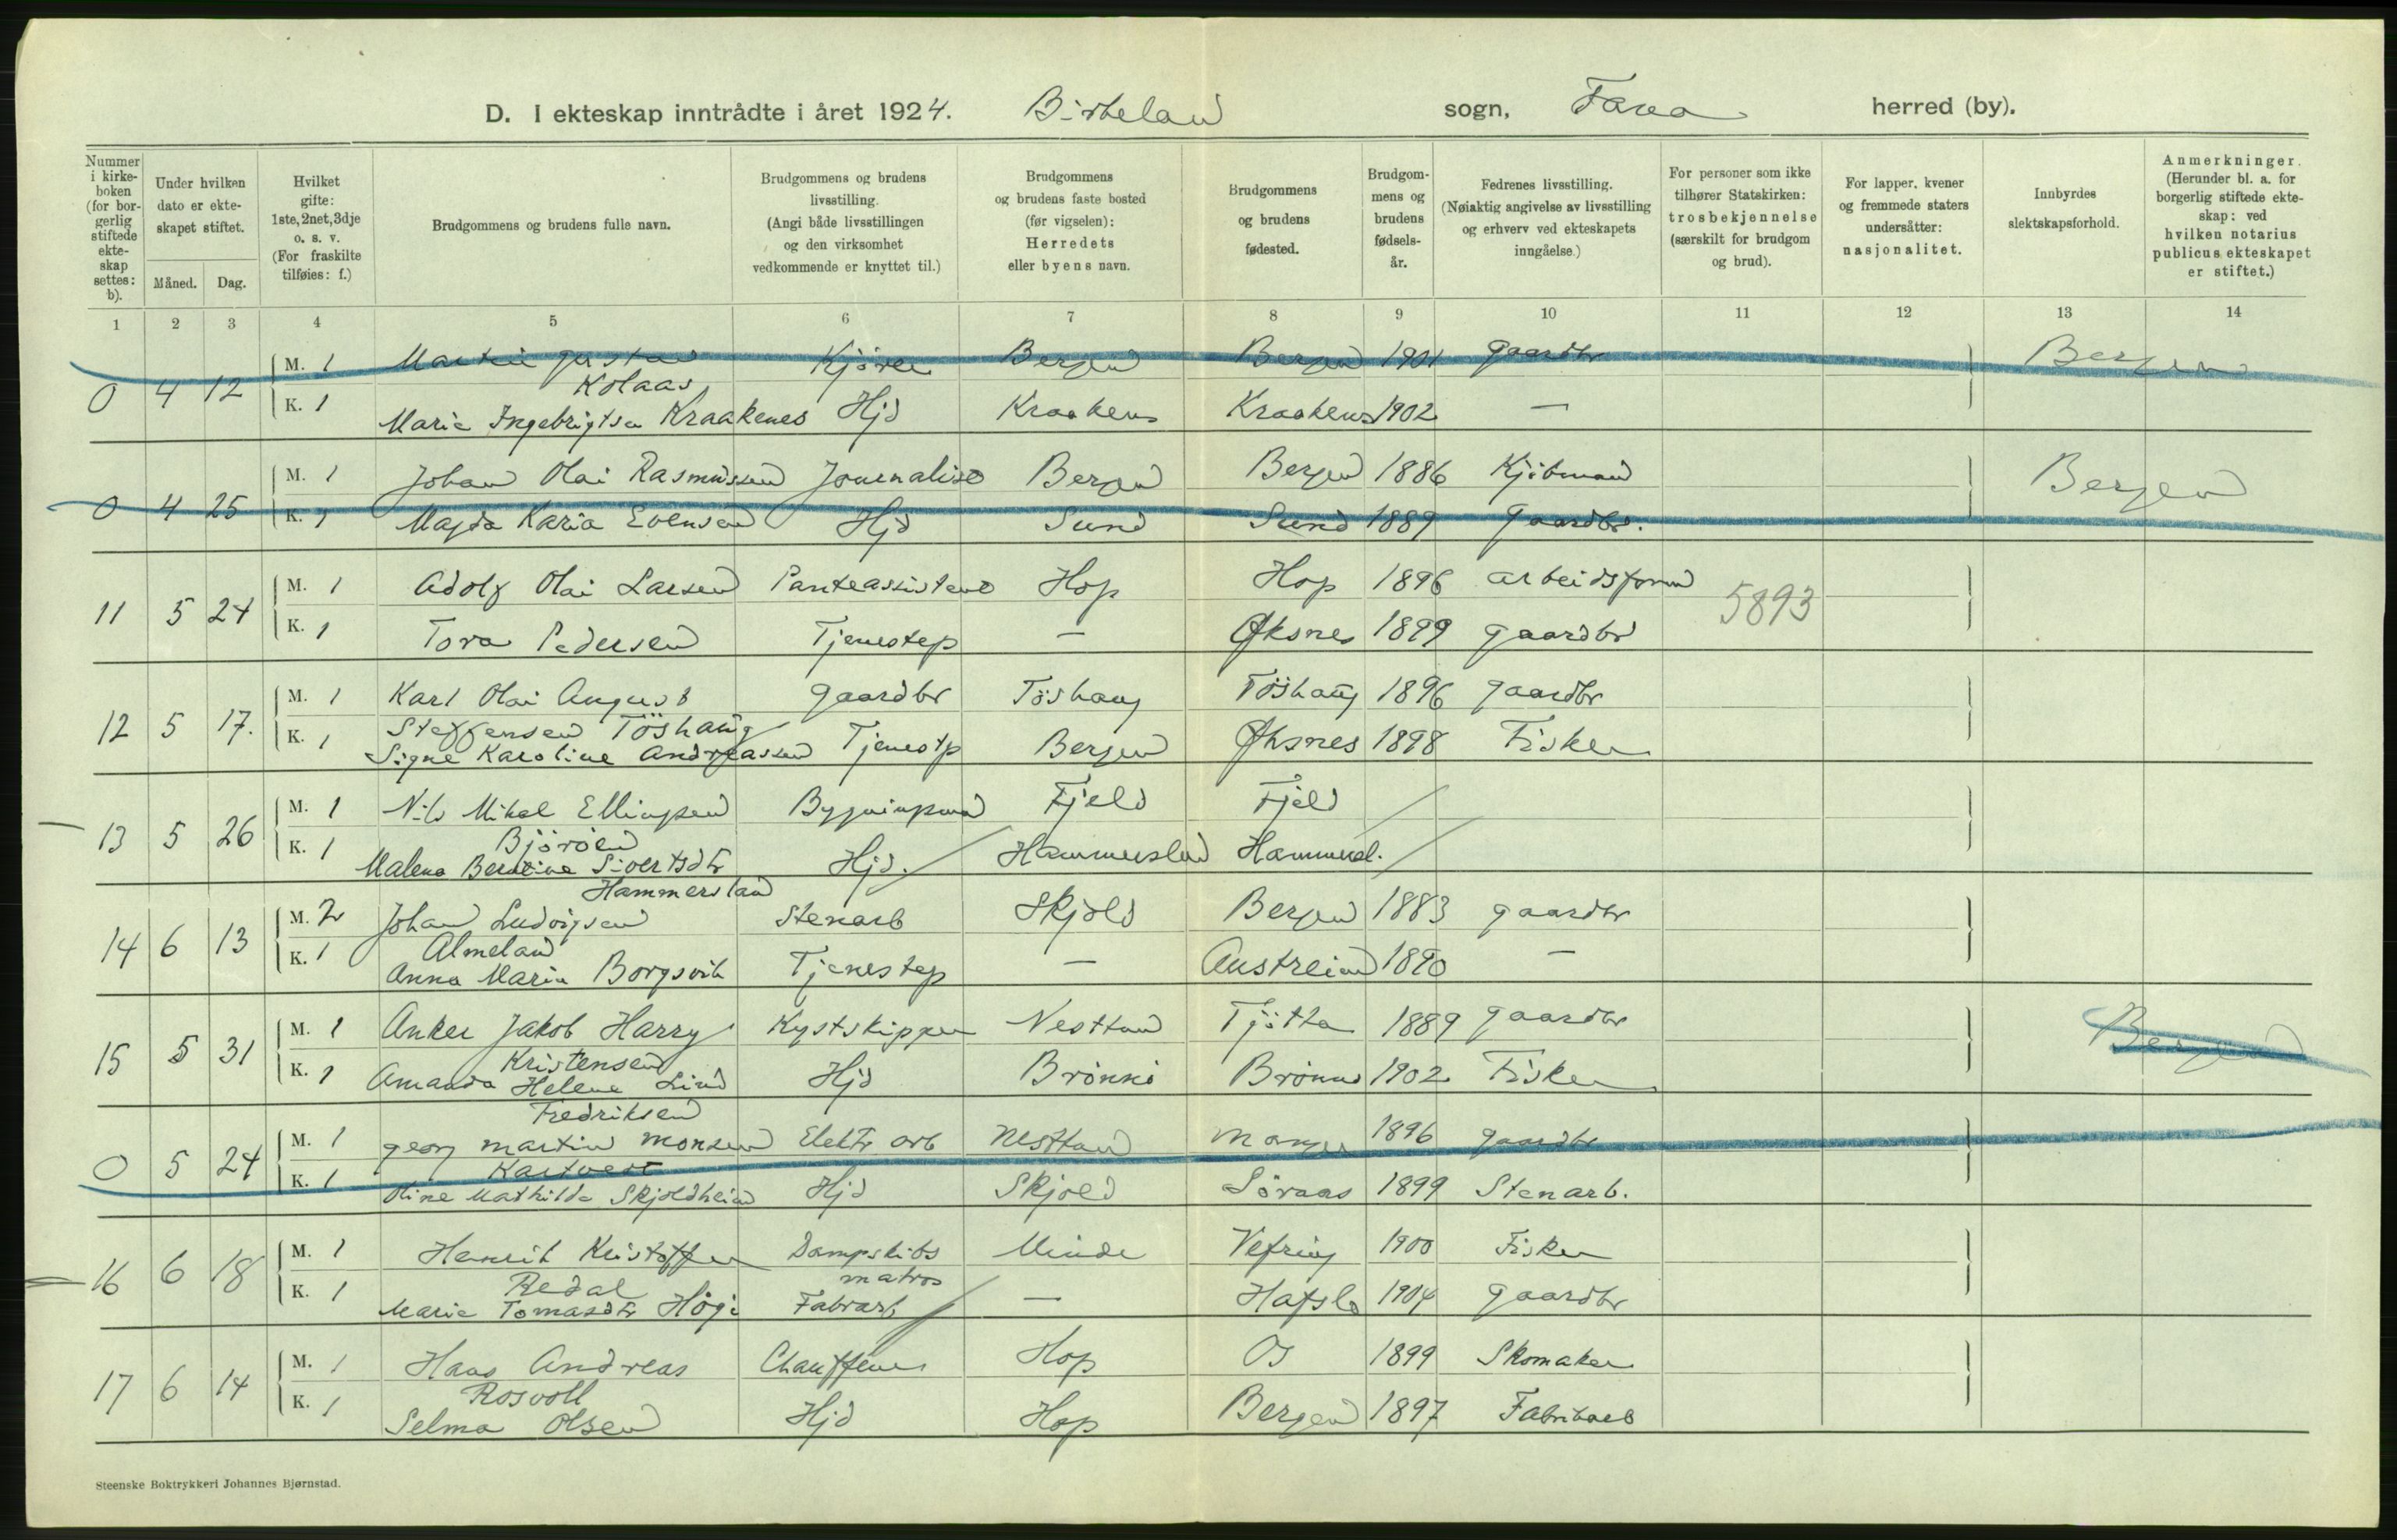 D. I ekteskap inntrådte i året 1924. Birkeland sogn, Fana herred (by).
Nummer i kirkeboken (for borgerlig stiftede ekteskap settes: b).
Under hvilken dato er ekteskapet stiftet.
Måned. Dag.
Hvilket gifte: 1ste, 2net, 3dje o. s. v. (For fraskilte tilføies: f.)
Brudgommens og brudens fulle navn.
Brudgommens og brudens livsstilling. (Angi både livsstillingen og den virksomhet vedkommende er knyttet til.)
Brudgommens og brudens faste bosted (før vigselen): Herredets eller byens navn.
Brudgommens og brudens fødested.
Brudgommens og brudens fødselsår.
Fedrenes livsstilling. (Nøiaktig angivelse av livsstilling og erhverv ved ekteskapets inngåelse.)
For personer som ikke tilhører Statskirken: trosbekjennelse (særskilt for brudgom og brud).
For lapper, kvener og fremmede staters undersåtter: nasjonalitet.
Innbyrdes slektskapsforhold.
Anmerkninger. (Herunder bl. a. for borgerlig stiftede ekteskap: ved hvilken notarius publicus ekteskapet er stiftet.)
1 2 3 4 5 6 7 8 9 10 11 12 13 14
0 4 12 M. 1 Martin Gustav Bergen Bergen 1901 gaardbr Bergen
Kolaas
K. 1 Marie Ingebrigtsen Kraakenes Hjd Kraakens Kraakens 1902 —
M. 1 Johan Olai Rasmussen Journalist Bergen Bergen 1886 Kjöbmand Bergen
0 4 25 K. 1 Magda Karia Evensen Hjd Sund Sund 1889 Gaardbr.
11 5 24 M. 1 Adolf Olai Larsen Hop Hop 1896 arbeidsform 5893
K. 1 Tora Pedersen Tjenestep — Øksnes 1899 gaardbr
12 5 17. M. 1 Karl Olai August gaardbr Töshaug Töshaug 1896 gaardbr
Steffensen Töshaug
K. 1 Signe Karoline Andreassen Tjenestp Bergen Øksnes 1898 Fisker
13 5 26 M. 1 Nils Mikal Ellingsen Fjeld Fjeld
Björöen
K. 1 Malena Berdtine Sivertsdtr Hjd. Hammersland Hammersl.
Hammersland
14 6 13 M. 2 Johan Ludvigsen Stenarb Skjold Bergen 1883 gaardbr
Almeland
K. 1 Anna Maria Borgsvik Tjenestep — Austreim 1890 —
15 5 31 M. 1 Anker Jakob Harry Kystskipper Nesttun Tjötta 1889 gaardbr Bergen
Kristensen
K. 1 Amanda Helene Lind Hjd Brönnö Brönnö 1902 Fisker
Fredriksen
0 5 24 M. 1 georg martin monsen Elektr arb Nesttun Manger 1896 gaardbr
Kartveit
K. 1 Oline Mathilde Skjoldheim Hjd Skjold Söraas 1899 Stenarb.
16 6 18 M. 1 Henrik Kristoffer Dampskibs Minde Vefring 1900 Fisker
Redal matros
K. 1 Marie Tomasdtr Högi Fabrarb — Hafslo 1904 Gaardbr
17 6 14 M. 1 Hans Andreas Chauffeur Hop Os 1899 Skomaker
Rosvoll
K. 1 Selma Olsen Hjd Hop Bergen 1897 Fabrikarb
Steenske Boktrykkeri Johannes Bjørnstad.